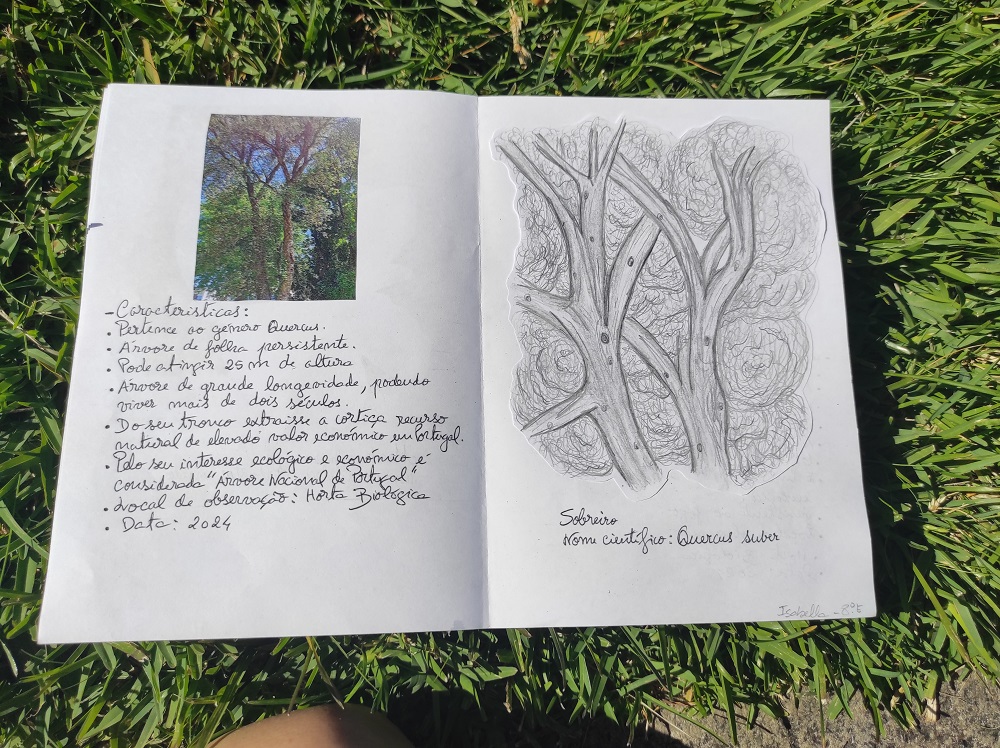 - Características:
• Pertence ao género Quercus.
• Árvore de folha persistente.
• Pode atingir 25 m de altura
• Árvore de grande longevidade, podendo
viver mais de dois séculos.
• Do seu tronco extraisse a cortiça recurso
natural de elevado valor económico em Portugal.
• Pelo seu interesse ecológico e económico é
considerada "Árvore Nacional de Portugal"
• Local de observação: Horta Biológica
• Data: 2024
Sobreiro
Nome científico: Quercus suber
Isabella - 8ºE